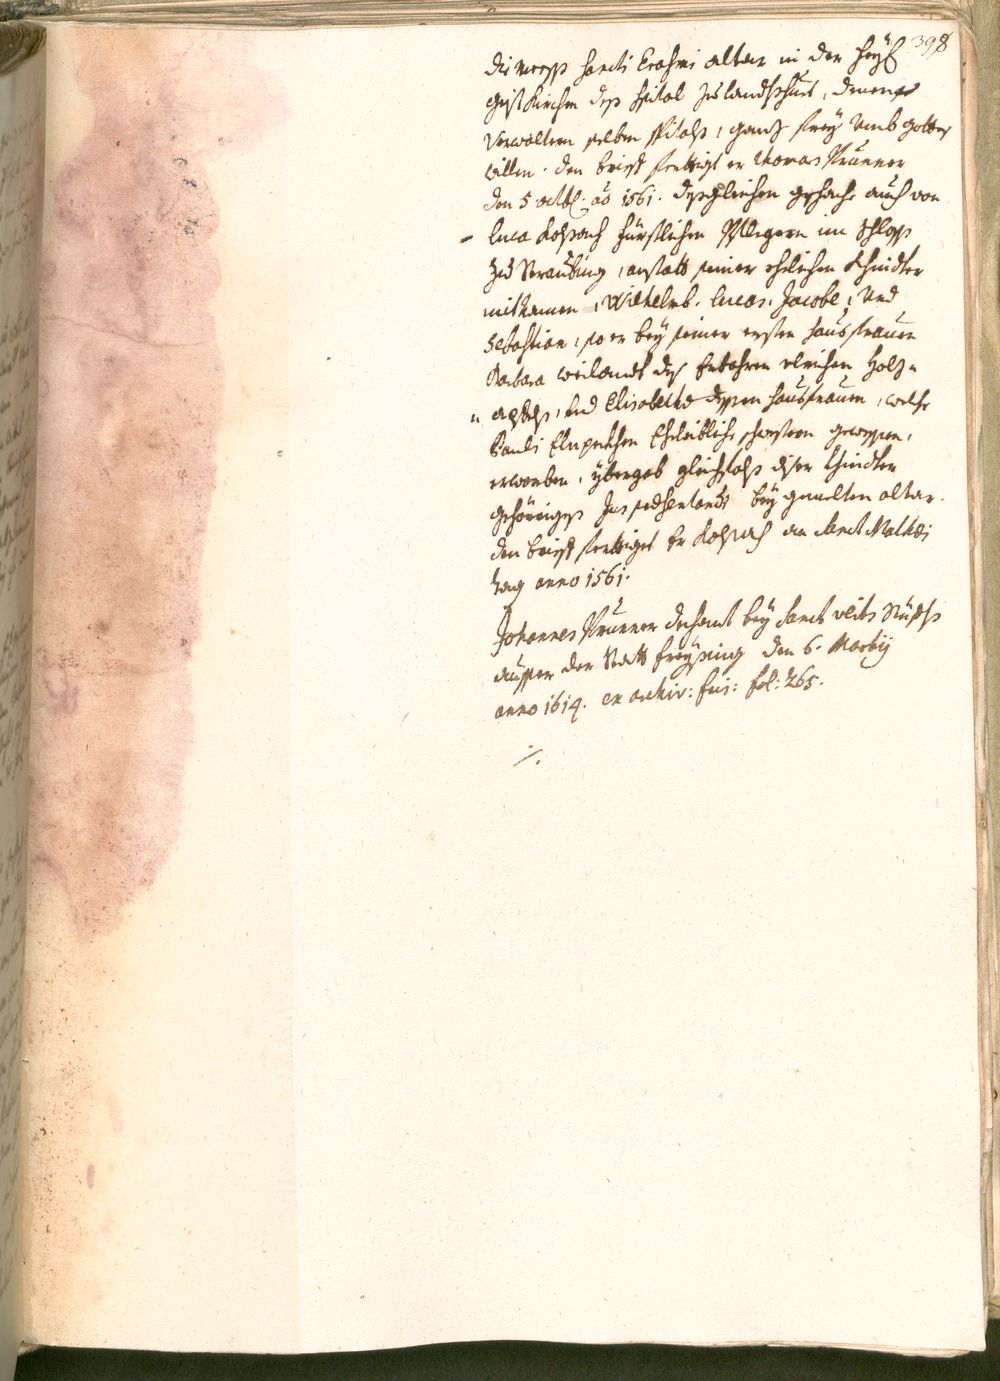 398
die mess sancti Erasmi altar in der heyl:
geist Kirchen dess spitol zu landtshuet, denen
Verwaltern selben spitalss, gantz frey umb gottes
willen. den brieff ferttigt er thomas Prunner
den 5 octbr: aõ 1561. dessgleichen geschache auch von
Luca Rospach fürstlichen Pflegern im Schloss
zu Straubing, anstatt seiner ehelichen Khindter
mit namen, Wilhelmb. Lucas. Jacobe, Und
Sebastian, so er bey seiner ersten haussfrauen
Barbara weilandt dess Erbahren ulrichen Holz-
, und Elisabetha dessen haussfrauen, welche
Pauli ehrleibliche schwester gewessen,
erworben, ybergab gleichfalss diser Khindter
gehörriges Jus bey gemelten altar.
den brieff ferttiget Er Rospach an Sanct Mathei
tag anno 1561.
Johannes Prunner dechant bey Sanct veits Stüfft
ausser der Statt freysing den 6. Martij
anno 1614. ex archiv: fris: fol: 265.
./.